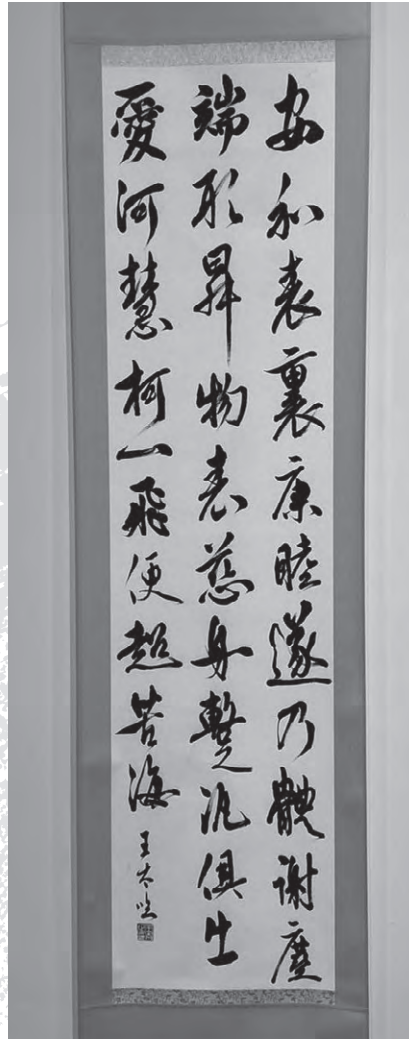 安和表裏康睦遂乃體謝塵
端形昇物表慈身蹔汎俱出
愛河慧柯一飛便超苦海
王太